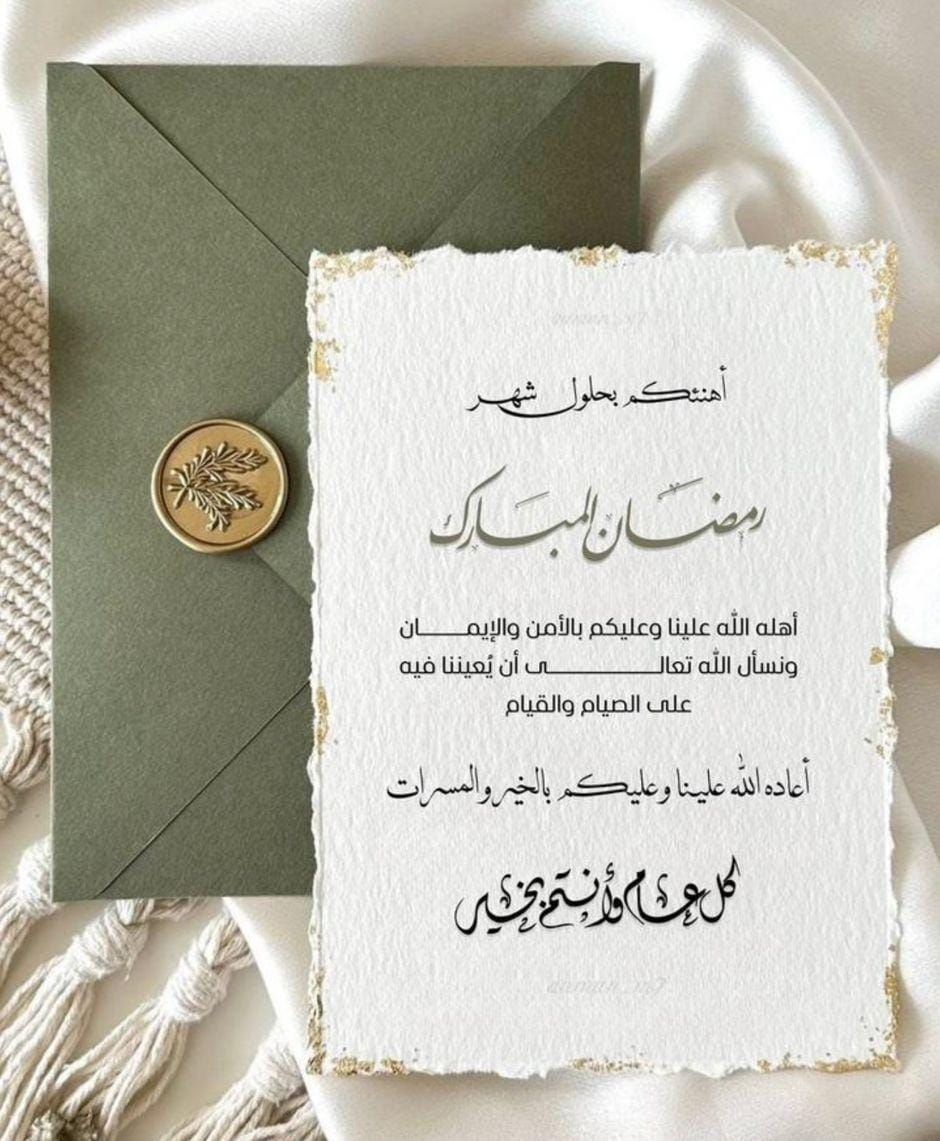 أهنئكم بحلول شهر
رمضان المبارك
أهله الله علينا وعليكم بالأمن والإيمـــــان
ونسأل الله تعالـــــــــــى أن يُعيننا فيه
على الصيام والقيام
أعاده الله علينا وعليكم بالخير والمسرات
كل عام وأنتم بخير